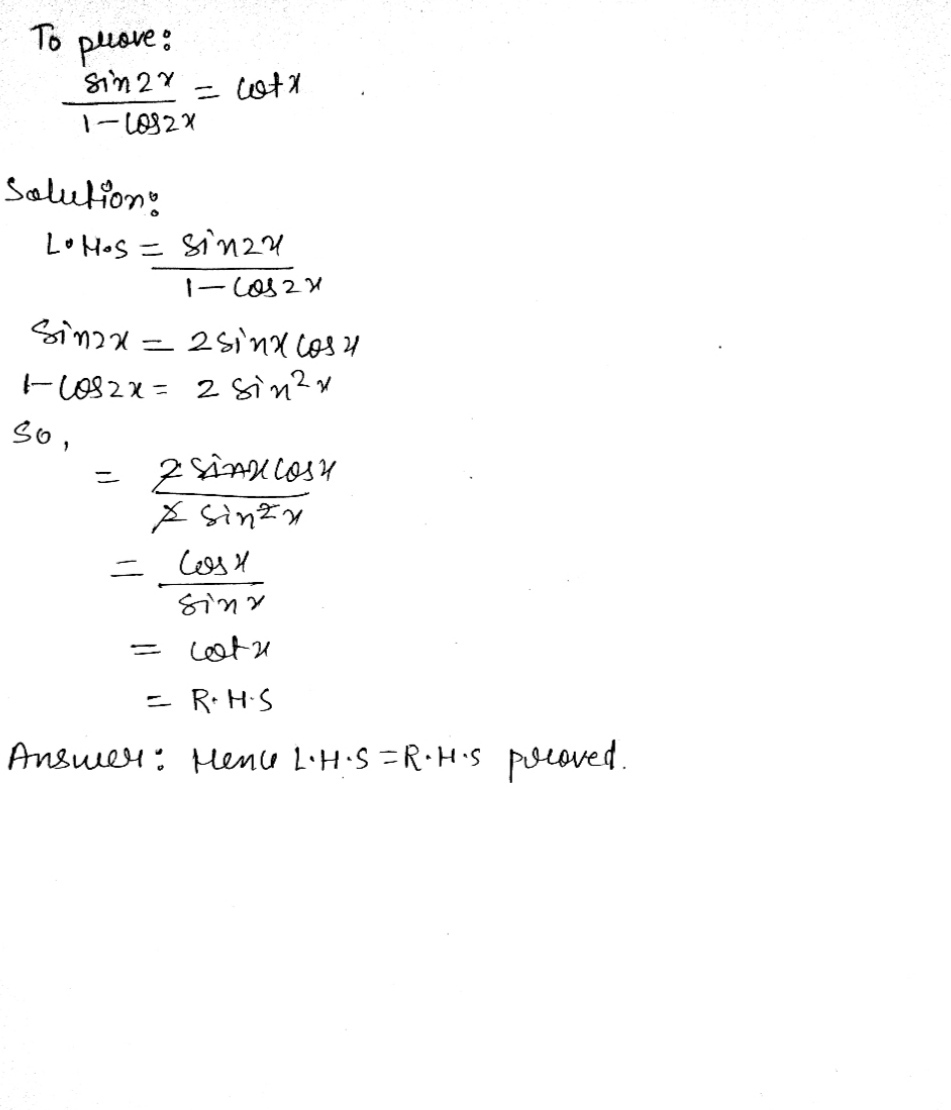 To prove:
sin2x
———— = cotx
1-cos2x
Solution:
L.H.S = sin2x
————
1-cos2x
Sin2x = 2sinx cosx
1-cos2x = 2 sin²x
So,
= 2 sinx cosx
————
2 sin²x
= cosx
————
sinx
= cotx
= R.H.S
Answer: Hence L.H.S = R.H.S proved.